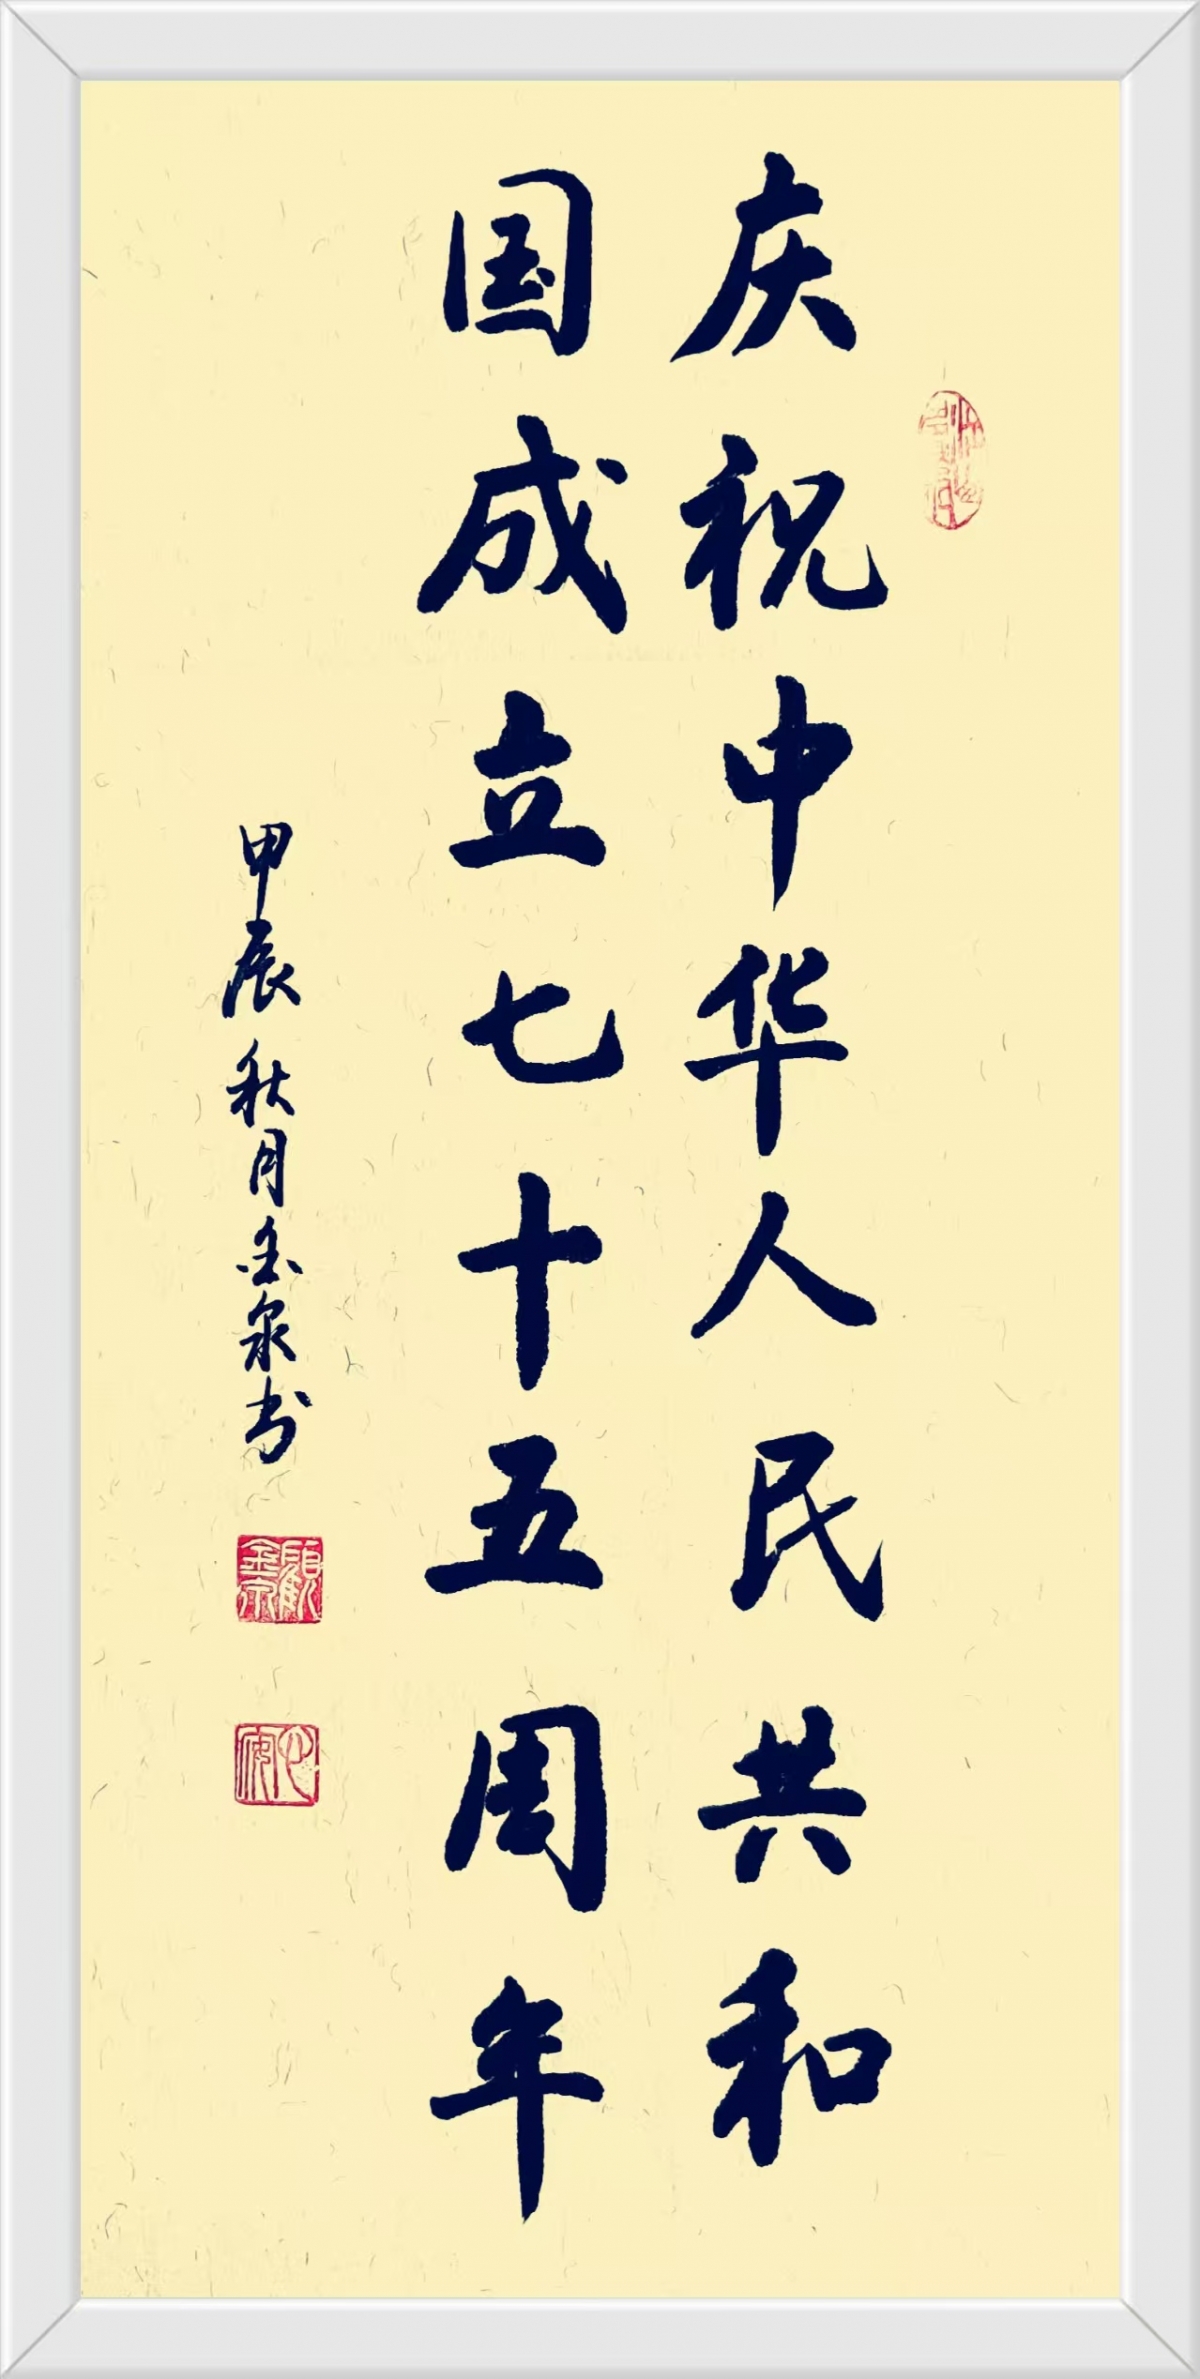 庆祝中华人民共和
国成立七十五周年
甲辰秋月金泉书
顾金泉